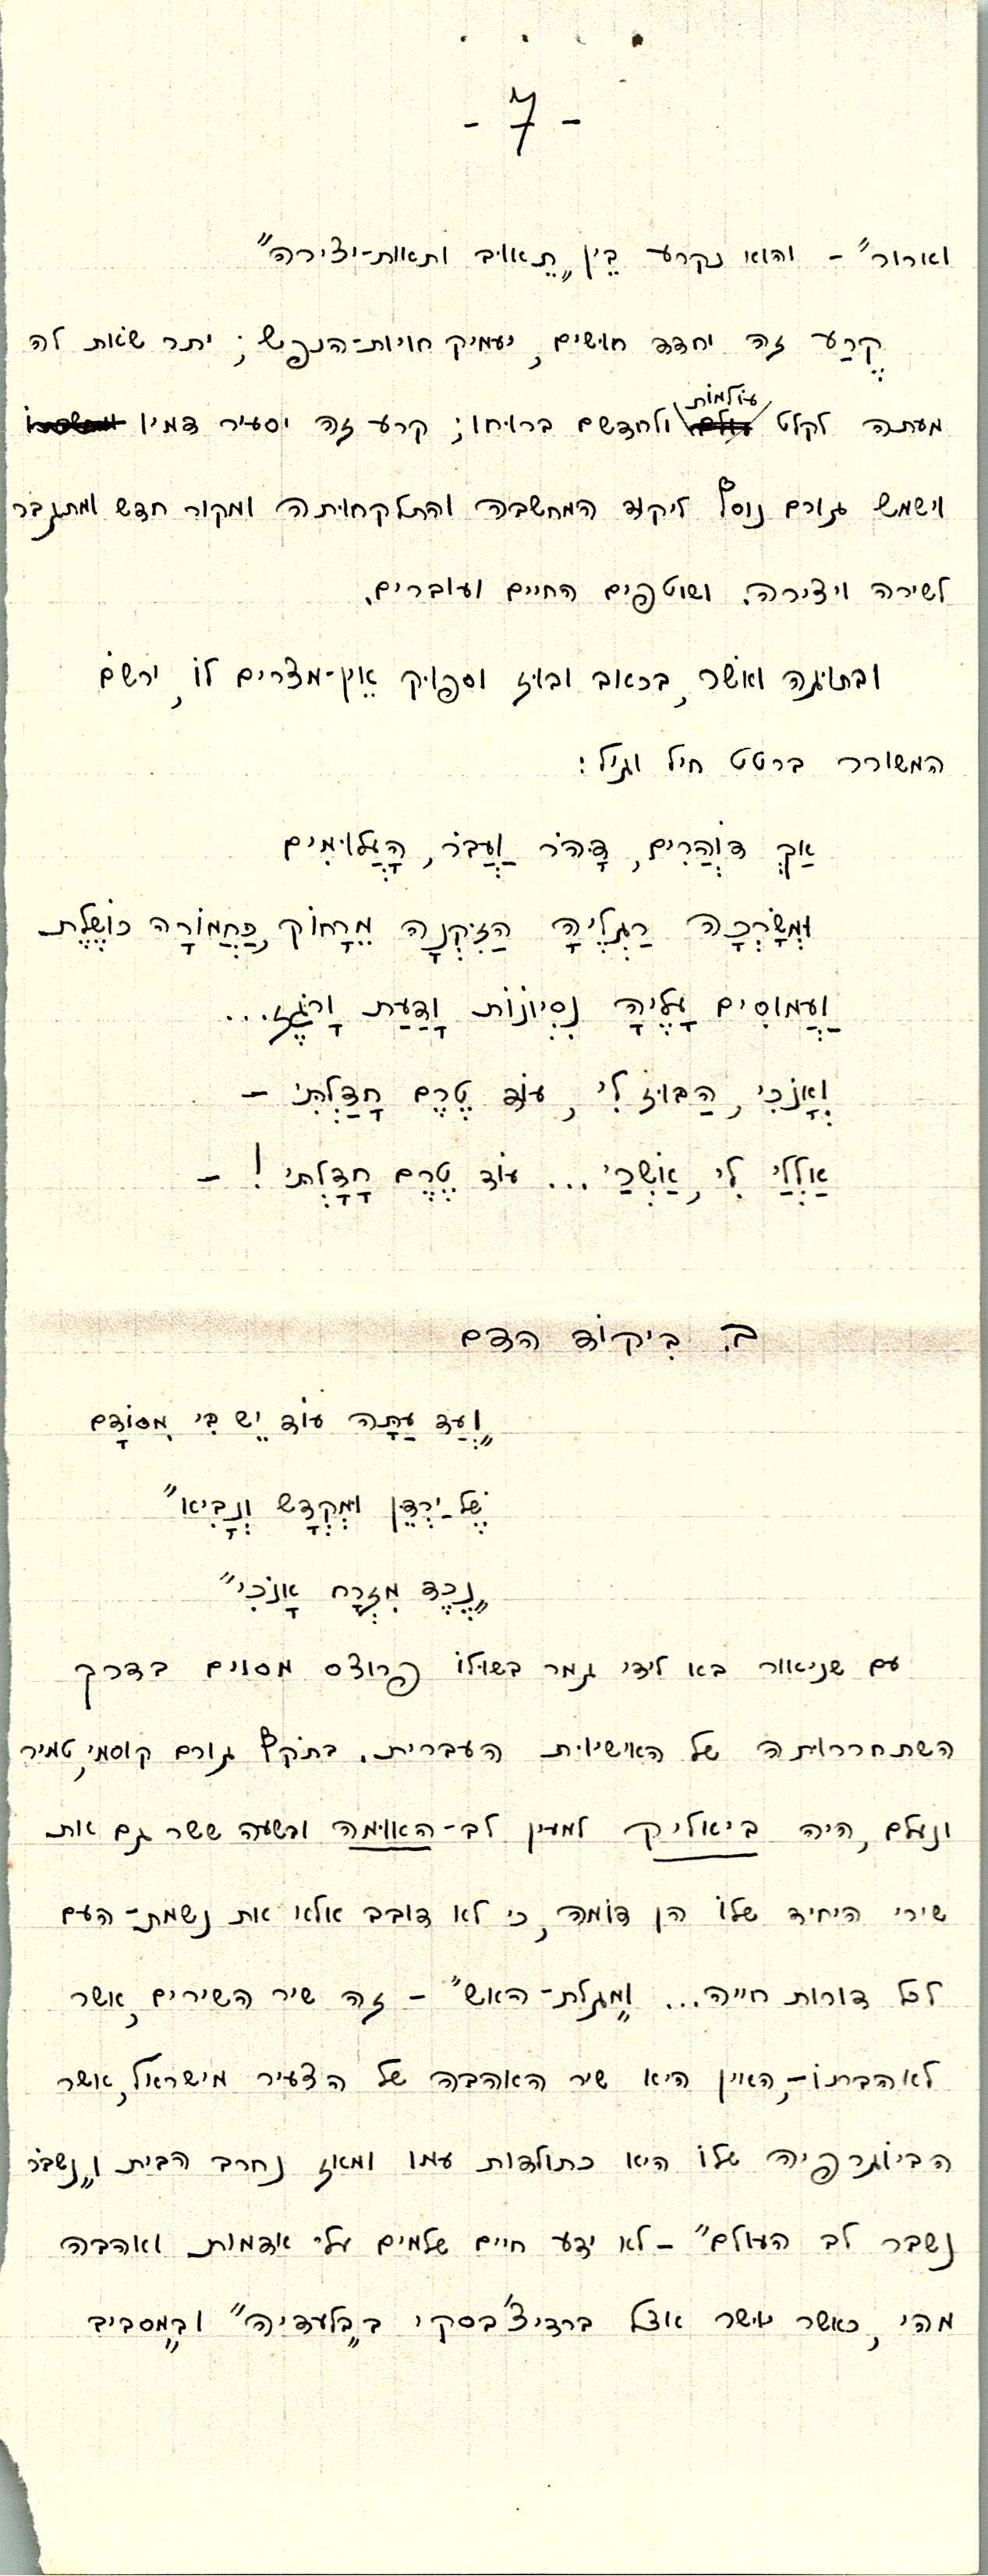 - 7 -
וארור" - והוא נקרע בֵין „תֵאוּיב ותאות-יצירה"
קֶרַע זה יחדד חושים, יעמיק חויות-הנפש; יתר שאת לה
מעתה לקלט עולמות ולחדשם ברוחו; קרע זה יסעיר דמיו
וישמש גורם נוסף ליקוד המחשבה והתלקחותה ומקור חדש ומתגבר
לשירה ויצירה. ושוטפים החיים ועוברים.
ובתוגה ואשר, בכאוב ובוז וספוק אֵין-מצרים לו, ירשם
המשורר ברטט חיל וגיל:
אַךְ דוֹהֲרִים, דָהֹר וַעֲבֹר, הָעֲלוּמִים
וּמְשָׂרְכָה רַגְלֶיהָ הַזִּקְנָה מֵרָחוֹק, כַּחֲמוֹרָה כוֹשֶׁלֶת
וַעֲמוּסִים עָלֶיהָ נִסְיוֹנוֹת וָדַעַת וָרֹגֶז...
וְאָנֹכִי, הַבוּז לִי, עוֹד טֶרֶם חָדַלְתִּי –
אַלְלַי לִי, אַשְׁרַי ... עוֹד טֶרֶם חָדָלְתִּי ! –
ב. בִיקוֹד הדם
„וְעַד עַתָּה עוֹד יֵש בִּי מִסוֹדָם
שֶׁל יַרְדֵּן וּמִקְדָשׁ וְנָבִיא"
„נֶכֶד מִזְרָח אָנֹכִי"
עם שניאור בא לידי גמר בשולו פרוצס מסוים בדרך
השתחררותה של האישיות העברית. בתֹקף גורם קוסמי, טמיר
ונעלם, היה ביאליק למעין לב-האוּמה ובשעה ששר גם את
שירי היחיד שלו הן דוֹמה, כי לא דובב אלא את נשמת-העם
לכל דורות חייה... וּ„מגלת-האש" – זה שיר השירים, אשר
לאהבתו –, האין היא שיר האהבה של הצעיר מישראל, אשר
הביוֹגרפיה שלו היא כתולדות עמו ומאז נחרב הבית ו„נשבֹר
נשבר לב העולם" – לא ידע חיים שלמים עלי אדמות ואהבה
מהי, כאשר יאשר אצל ברדיצ'בסקי ב„בלעדיה" וב„מסביב